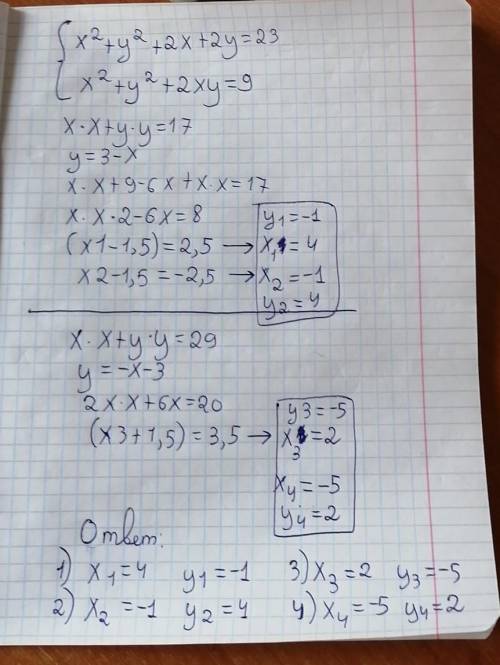 x²+y²+2x+2y=23
x²+y²+2xy=9
x·x+y·y=17
y=3-x
x·x+9-6x+x·x=17
x·x·2-6x=8
(x1-1,5)=2,5 → x₁=4
x2-1,5=-2,5 → x₂=-1
y₁=-1
y₂=4
x·x+y·y=29
y=-x-3
2x·x+6x=20
(x3+1,5)=3,5 → x₃=2
y3=-5
x₄=-5
y₄=2
Ответ:
1) x₁=4 y₁=-1 3) x₃=2 y₃=-5
2) x₂=-1 y₂=4 4) x₄=-5 y₄=2